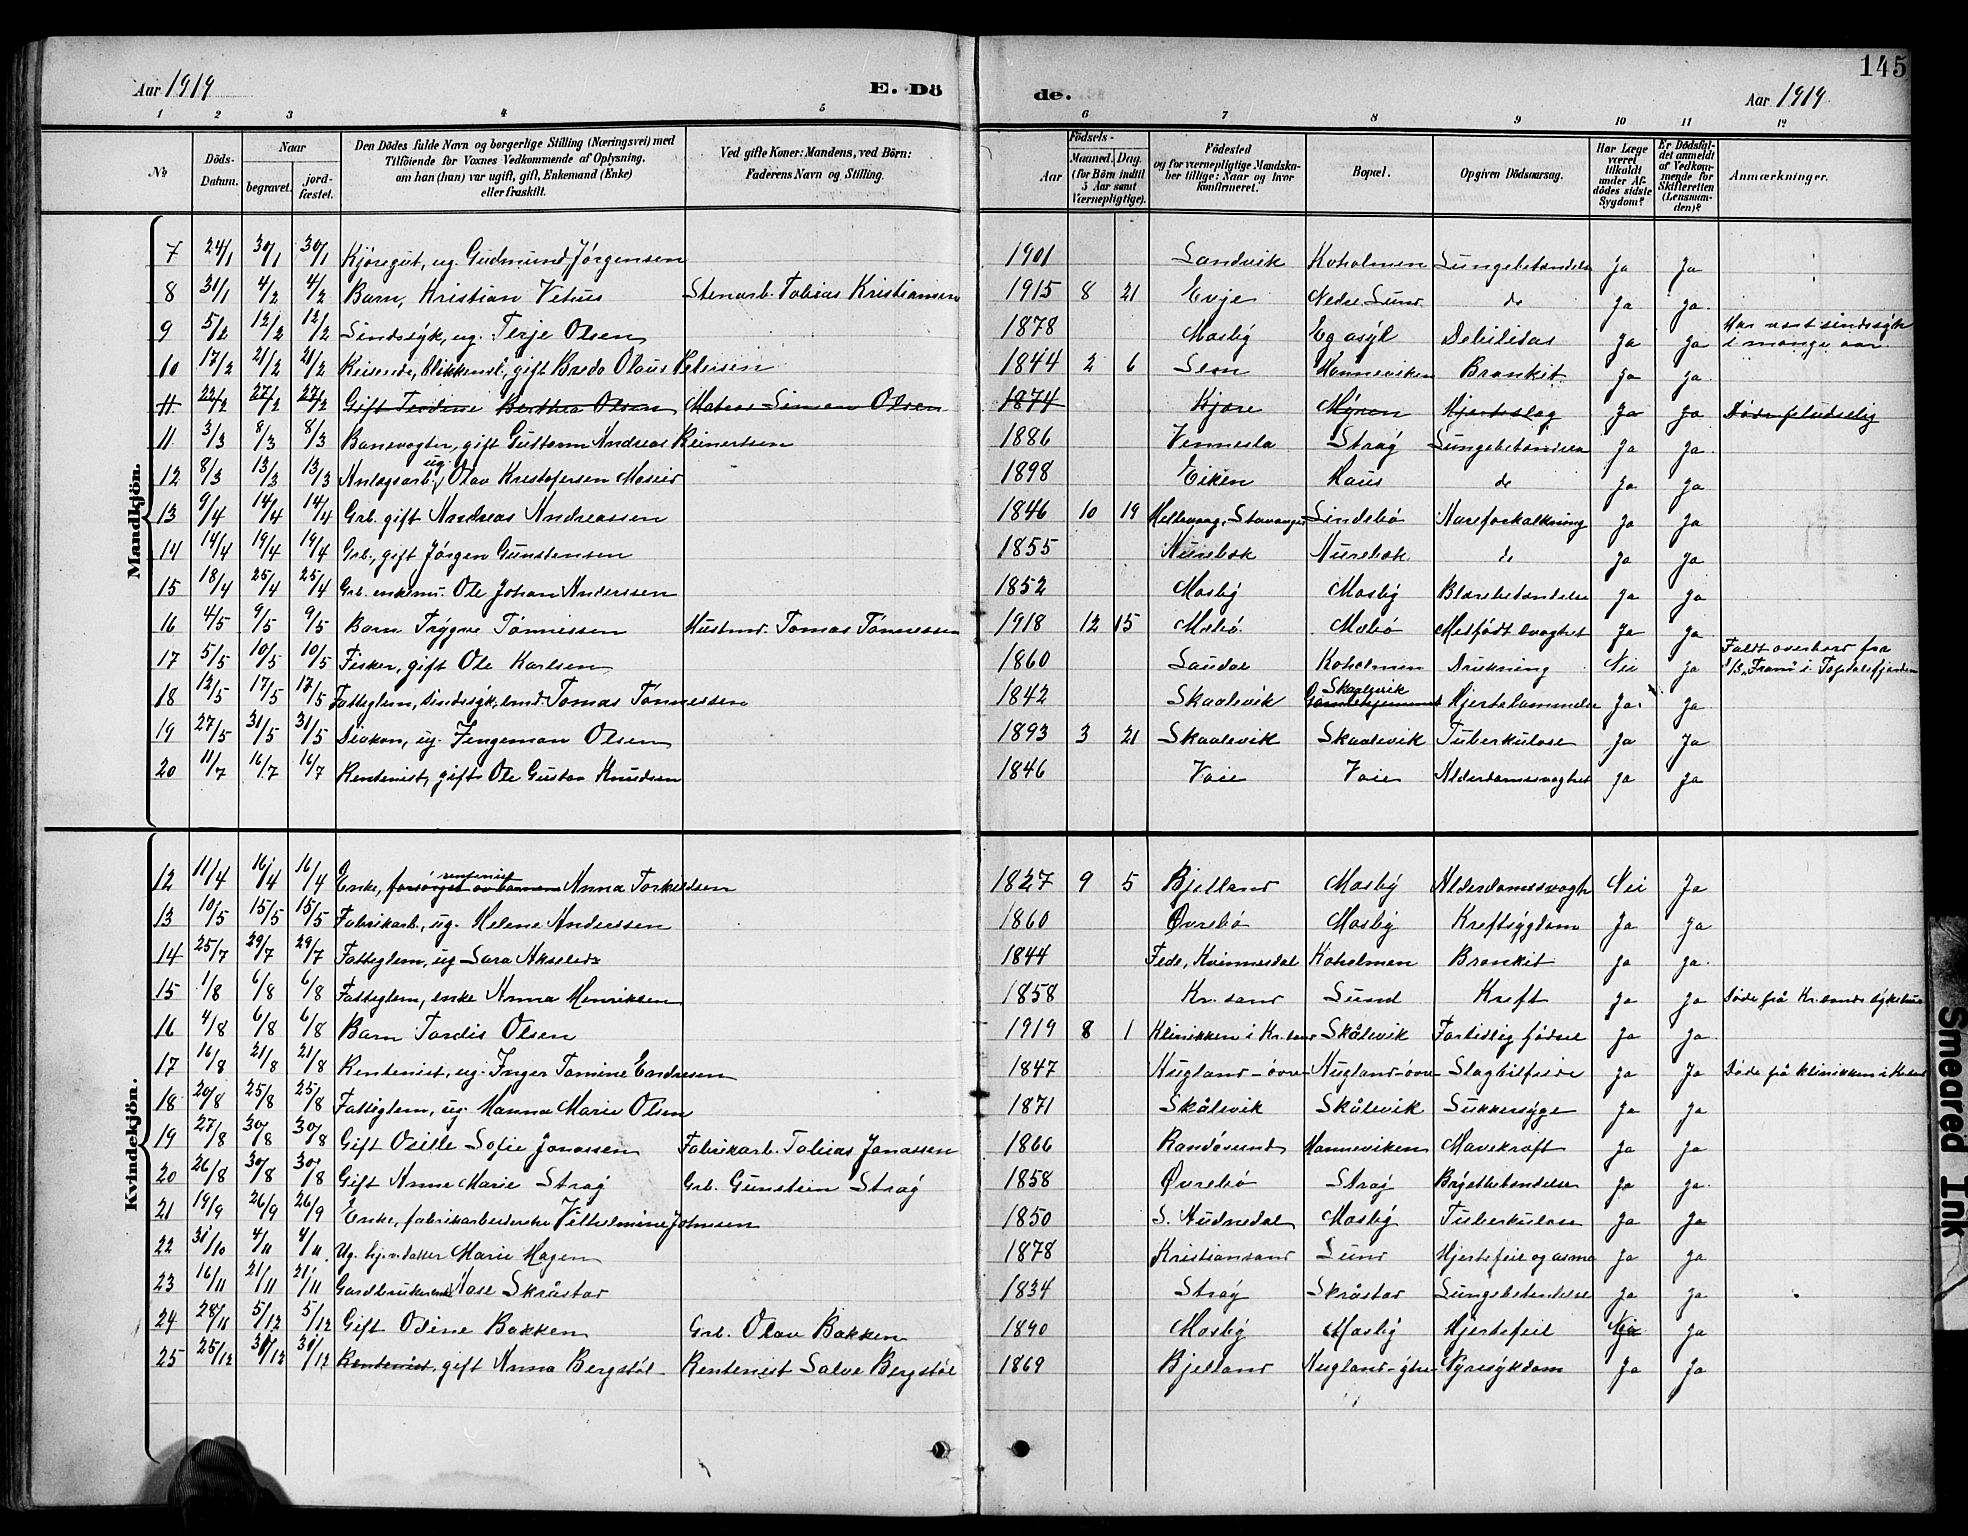 145
Aar 1919 E. Dö de. Aar 1919
1 2 3 4 5 6 7 8 9 10 11 12
№ Döds-Datum. Naar begravet. jord-fæstet. Den Dödes fulde Navn og borgerlige Stilling (Næringsvei) med Tilföiende for Voxnes Vedkommende af Oplysning, om han (hun) var ugift, gift, Enkemand (Enke) eller fraskilt. Ved gifte Koner: Mandens, ved Börn: Faderens Navn og Stilling. Födsels- Aar Maaned. Dag. (for Börn indtil 5 Aar samt Værnepligtige). Födested og for værnepligtige Mandskaber tillige: Naar og hvor konfirmeret. Bopæl. Opgiven Dödsaarsag. Har Læge været tilkaldt under Afdödes sidste Sygdom? Er Dödsfaldet anmeldt af Vedkommende for Skifteretten (Lensmanden)? Anmærkninger.
Mandkjön.
7 24/1 30/1 30/1 Kjøregut, ug. Gudmund Jørgensen 1901 Landvik Koholmen Lungebetændelse Ja Ja
8 31/1 4/2 4/2 Barn, Kristian Vehus Stenarb. Tobias Kristiansen 1915 8 21 Evje Nedre Lund do Ja Ja
9 5/2 12/2 12/2 Sindssyk, ug. Terje Olsen 1878 Mosby Eg asyl Debilitas Ja Ja Har vært sindssyk i mange aar.
10 17/2 21/2 21/2 Reisende, blikkensl., gift Bredo Olaus Petersen 1844 2 6 Leon Hanneviken Bronkit Ja Ja
11 22/2 27/2 27/2 Gift Teodine Berthea Olsen Matros Simon Olsen 1874 Kjøre Myren Hjerteslag Ja Ja Døde pludselig
11 3/3 8/3 8/3 Banevogter, gift Guttorm Andreas Reinertsen 1886 Vennesla Stray Lungebetændelse Ja Ja
12 8/3 13/3 13/3 Anlegsarb. ug Olav Kristofersen Moseid 1898 Eiken Haus do Ja Ja
13 9/4 14/4 14/4 Grb. gift Andreas Andreassen 1846 10 19 Hellevaag, Stavanger Lindebø Aareforkalkning Ja Ja
14 14/4 19/4 19/4 Grb., gift Jørgen Gunstensen 1855 Aurebæk Aurebæk do Ja Ja
15 18/4 25/4 25/4 Grb. enkem. Ole Johan Anderssen 1852 Mosby Mosby Blærebetændelse Ja Ja
16 4/5 9/5 9/5 Barn Trygve Tønnessen Husmd. Tomas Tønnessen 1918 12 15 Mæbø Mæbø Medfødt svaghet Ja Ja
17 5/5 10/5 10/5 Fisker, gift Ole Karlsen 1860 Laudal Koholmen Drukning Nei Ja Faldt overbord fra S/B „Fram“ i Topdalsfjorden
18 12/5 17/5 17/5 Fattiglem, sindssyk, emd. Tomas Tønnessen 1842 Skaalevik Skaalevik Gamlehjemmet Hjertelammelse Ja Ja
19 27/5 31/5 31/5 Diakon, ug. Ingeman Olsen 1893 3 21 Skaalevik Skaalevik Tuberkulose Ja Ja
20 11/7 16/7 16/7 Rentenist, gift Ole Gustav Knudsen 1846 Vaie Vaie Alderdomssvaghet Ja Ja
Kvindekjön.
12 11/4 16/4 16/4 Enke, forsørget av barnene rentenist Anna Torkeldsen 1827 9 5 Bjelland Mosby Alderdomssvagh Nei Ja
13 10/5 15/5 15/5 Fabrikarb., ug. Helene Anderssen 1860 Øvrebø Mosby Kreftsygdom Ja Ja
14 25/7 29/7 29/7 Fattiglem, ug Sara Akselsdr 1844 Fede, Kvinnesdal Koholmen Bronkit Ja Ja
15 1/8 6/8 6/8 Fattiglem, enke Anna Henriksen 1858 Kr. sand Lund Kreft Ja Ja Døde på Kr.sands sykehus
16 4/8 6/8 6/8 Barn Tordis Olsen 1919 8 1 Klinikken i Kr.sand Skålevik Fortidlig fødsel Ja Ja
17 16/8 21/8 21/8 Rentenist, ug. Inger Tomine Endresen 1847 Augland-øvre Augland-øvre Slagtilfelde Ja Ja Døde på klinikken i Krsand
18 20/8 25/8 25/8 Fattiglem, ug. Hanna Marie Olsen 1871 Skålevik Skålevik Sukkersyge Ja Ja
19 27/8 30/8 30/8 Gift Osille Sofie Jonassen Fabrikarb. Tobias Jonassen 1866 Randøsund Hanneviken Mavekræft Ja Ja
20 26/8 30/8 30/8 Gift Anna Marie Stray Grb. Gunstein Stray 1858 Øvrebø Stray Brystbetændelse Ja Ja
21 19/9 26/9 26/9 Enke, fabrikarbeiderske Vilhelmine Johnsen 1850 S. Audnedal Mosby Tuberkulose Ja Ja
22 31/10 4/11 4/11 Ug. hj.datter Marie Hagen 1878 Kristiansand Lund Hjertefeil og asma Ja Ja
23 16/11 21/11 21/11 Gardbrukerenke Aase Skråstar 1834 Stray Skråstar Lungebetendelse Ja Ja
24 28/11 5/12 5/12 Gift Odine Bakken Grb. Olav Bakken 1890 Mosby Mosby Hjertefeil Nei Ja
25 25/12 30/12 30/12 Rentenist, gift Anna Bergstøl Rentenist Salve Bergstøl 1869 Bjelland Augland-ytre Nyresykdom Ja Ja
Smeared Ink